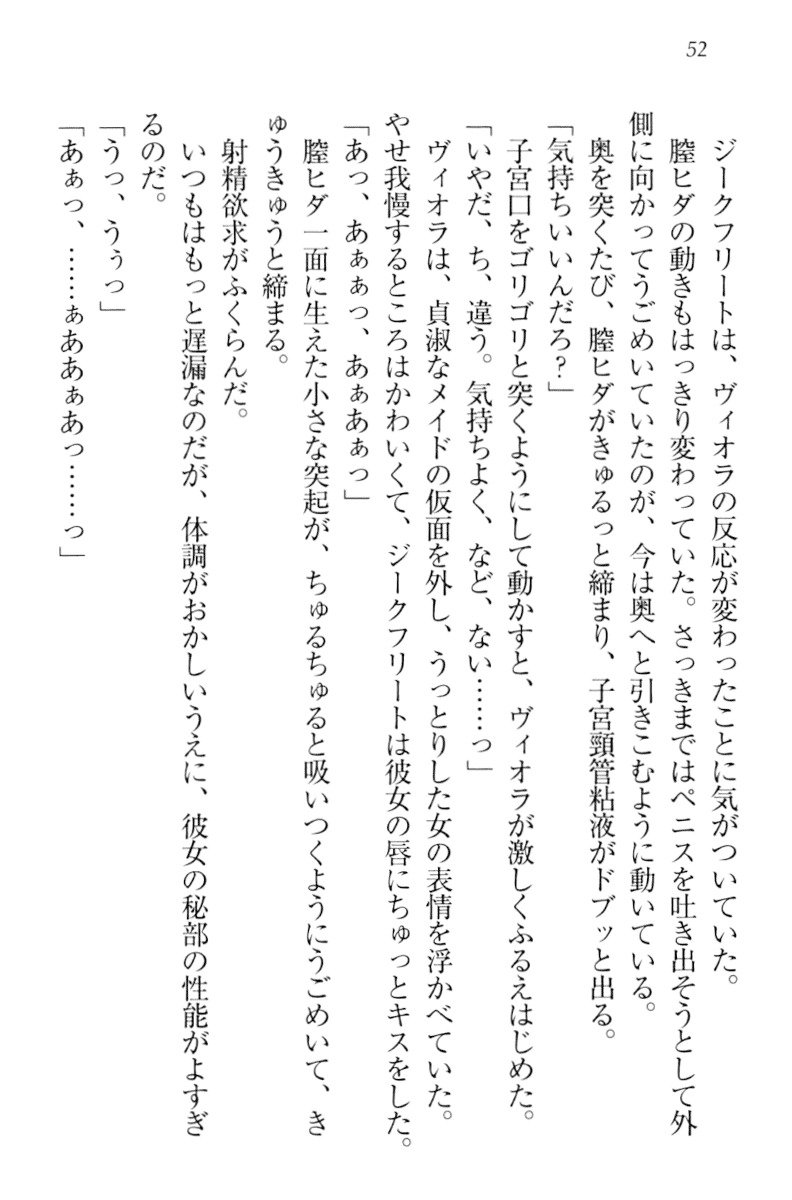 52
ジークフリートは、ヴィオラの反応が変わったことに気がついていた。
膣ヒダの動きもはっきり変わっていた。さっきまではペニスを吐き出そうとして外
側に向かってうごめいていたのが、今は奥へと引きこむように動いている。
奥を突くたび、膣ヒダがきゅるっと締まり、子宮頸管粘液がドブッと出る。
「気持ちいいんだろ?」
子宮口をゴリゴリと突くようにして動かすと、ヴィオラが激しくふるえはじめた。
「いやだ、ち、違う。気持ちよく、など、ない……っ」
ヴィオラは、貞淑なメイドの仮面を外し、うっとりした女の表情を浮かべていた。
やせ我慢するところはかわいくて、ジークフリートは彼女の唇にちゅっとキスをした。
「あっ、あぁぁっ、あぁあぁっ」
膣ヒダ一面に生えた小さな突起が、ちゅるちゅると吸いつくようにうごめいて、き
ゅうきゅうと締まる。
射精欲求がふくらんだ。
いつもはもっと遅漏なのだが、体調がおかしいうえに、彼女の秘部の性能がよすぎ
るのだ。
「うっ、うぅっ」
「あぁっ、……ぁああぁあっ……っ」